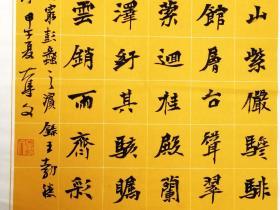 山紫儼驂騑
館層台聳翠
縈迴桂殿蘭
澤紆其駭矚
雲銷雨齊彩
窮彭蠡之濱 錄王勃滕
甲午夏